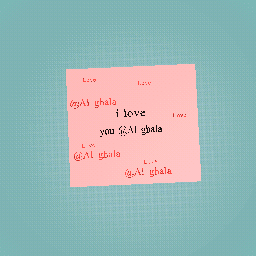 Love
Love
@Al gbala
i love
Love
you @Al gbala
Love
@Al gbala
Love
@Al gbala